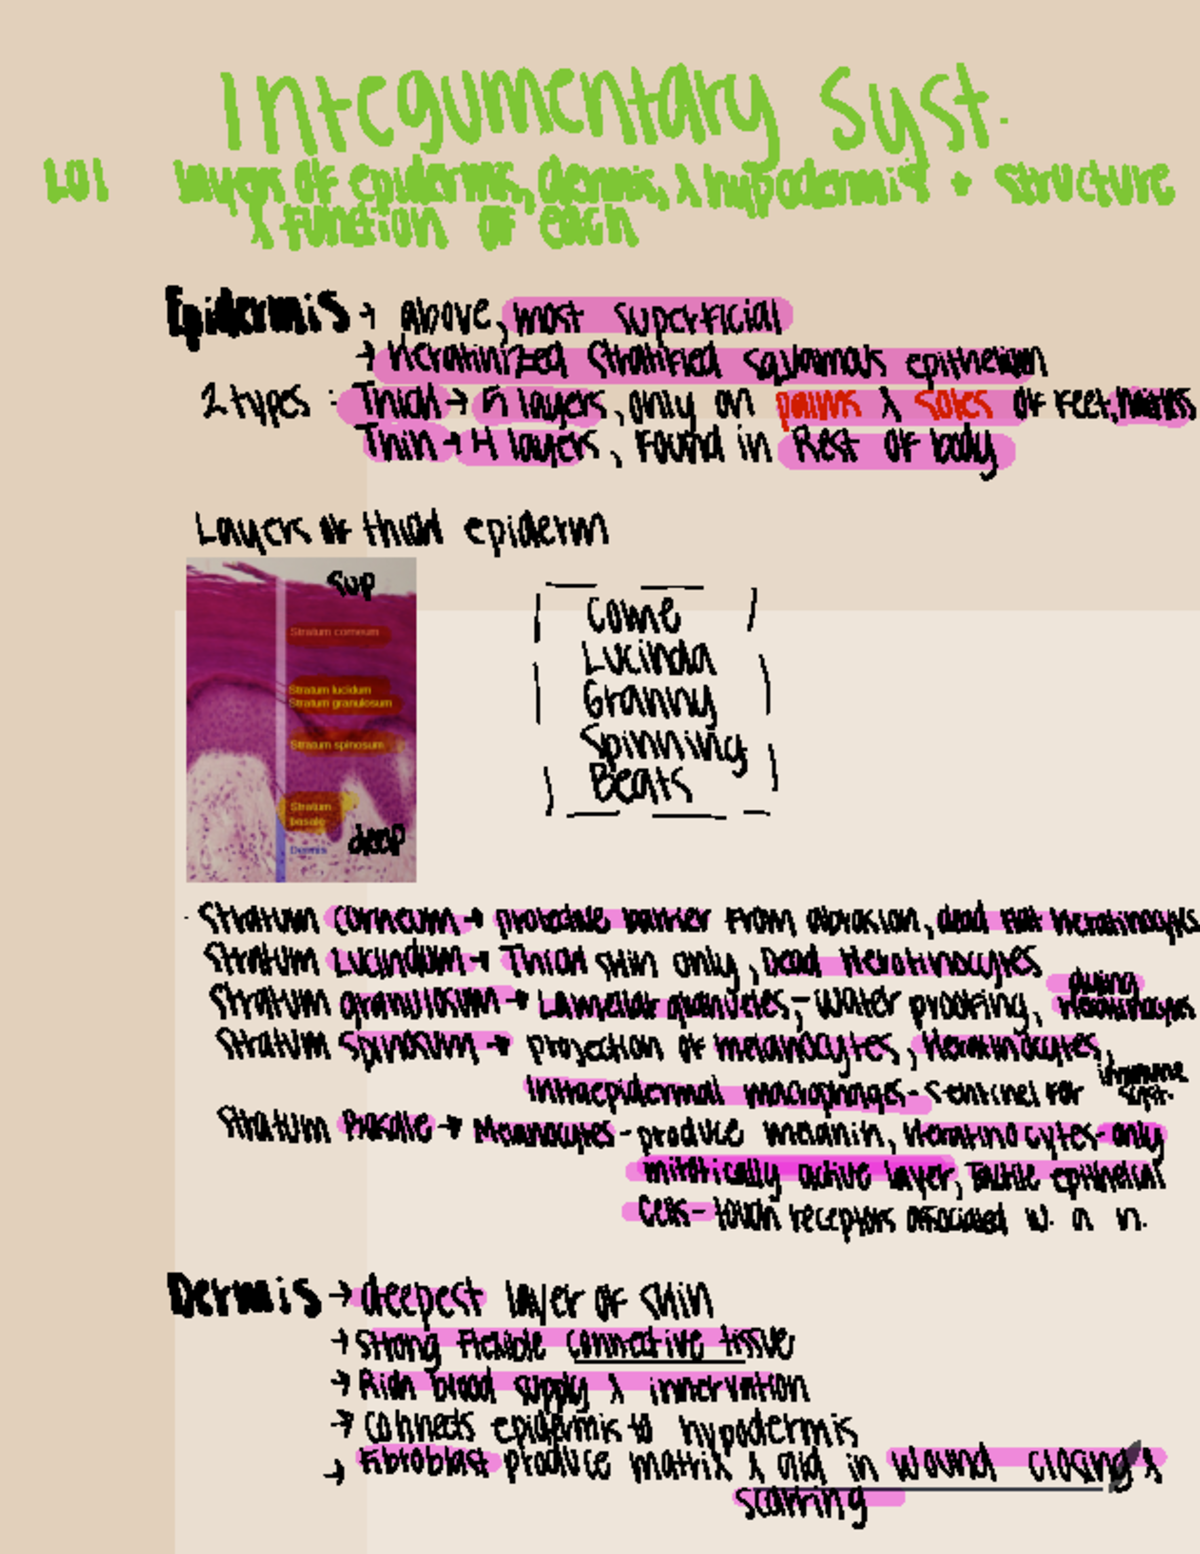 Integumentary Syst.
LO1 layers of epidermis, dermis, & hypodermis + structure
& function of each
Epidermis → above, most superficial
→ Keratinized stratified squamous epithelium
2 types : Thick → 5 layers, only on palms & soles of feet, hairless
Thin → 4 layers, found in Rest of body
Layers of thick epiderm
sup
Stratum corneum
Stratum lucidum
Stratum granulosum
Stratum spinosum
Stratum
basale
Dermis
deep
Come
Lucinda
Granny
Spinning
Beats
Stratum corneum → protective barrier from abrasion, dead flat keratinocytes
Stratum Lucindum → Thick skin only, Dead keratinocytes
Stratum granulosum → Lamellar granules, - water proofing, dying keratinocytes
Stratum spinosum → projection of melanocytes, keratinocytes,
intraepidermal macrophages - sentinel for immune syst.
Stratum Basale → Melanocytes - produce melanin, keratinocytes - only
mitotically active layer, Tactile epithelial
cells - touch receptors associated w. a n.
Dermis → deepest layer of skin
→ strong flexible connective tissue
→ Rich blood supply & innervation
→ connects epidermis to hypodermis
→ Fibroblast produce matrix & aid in wound closing &
scarring